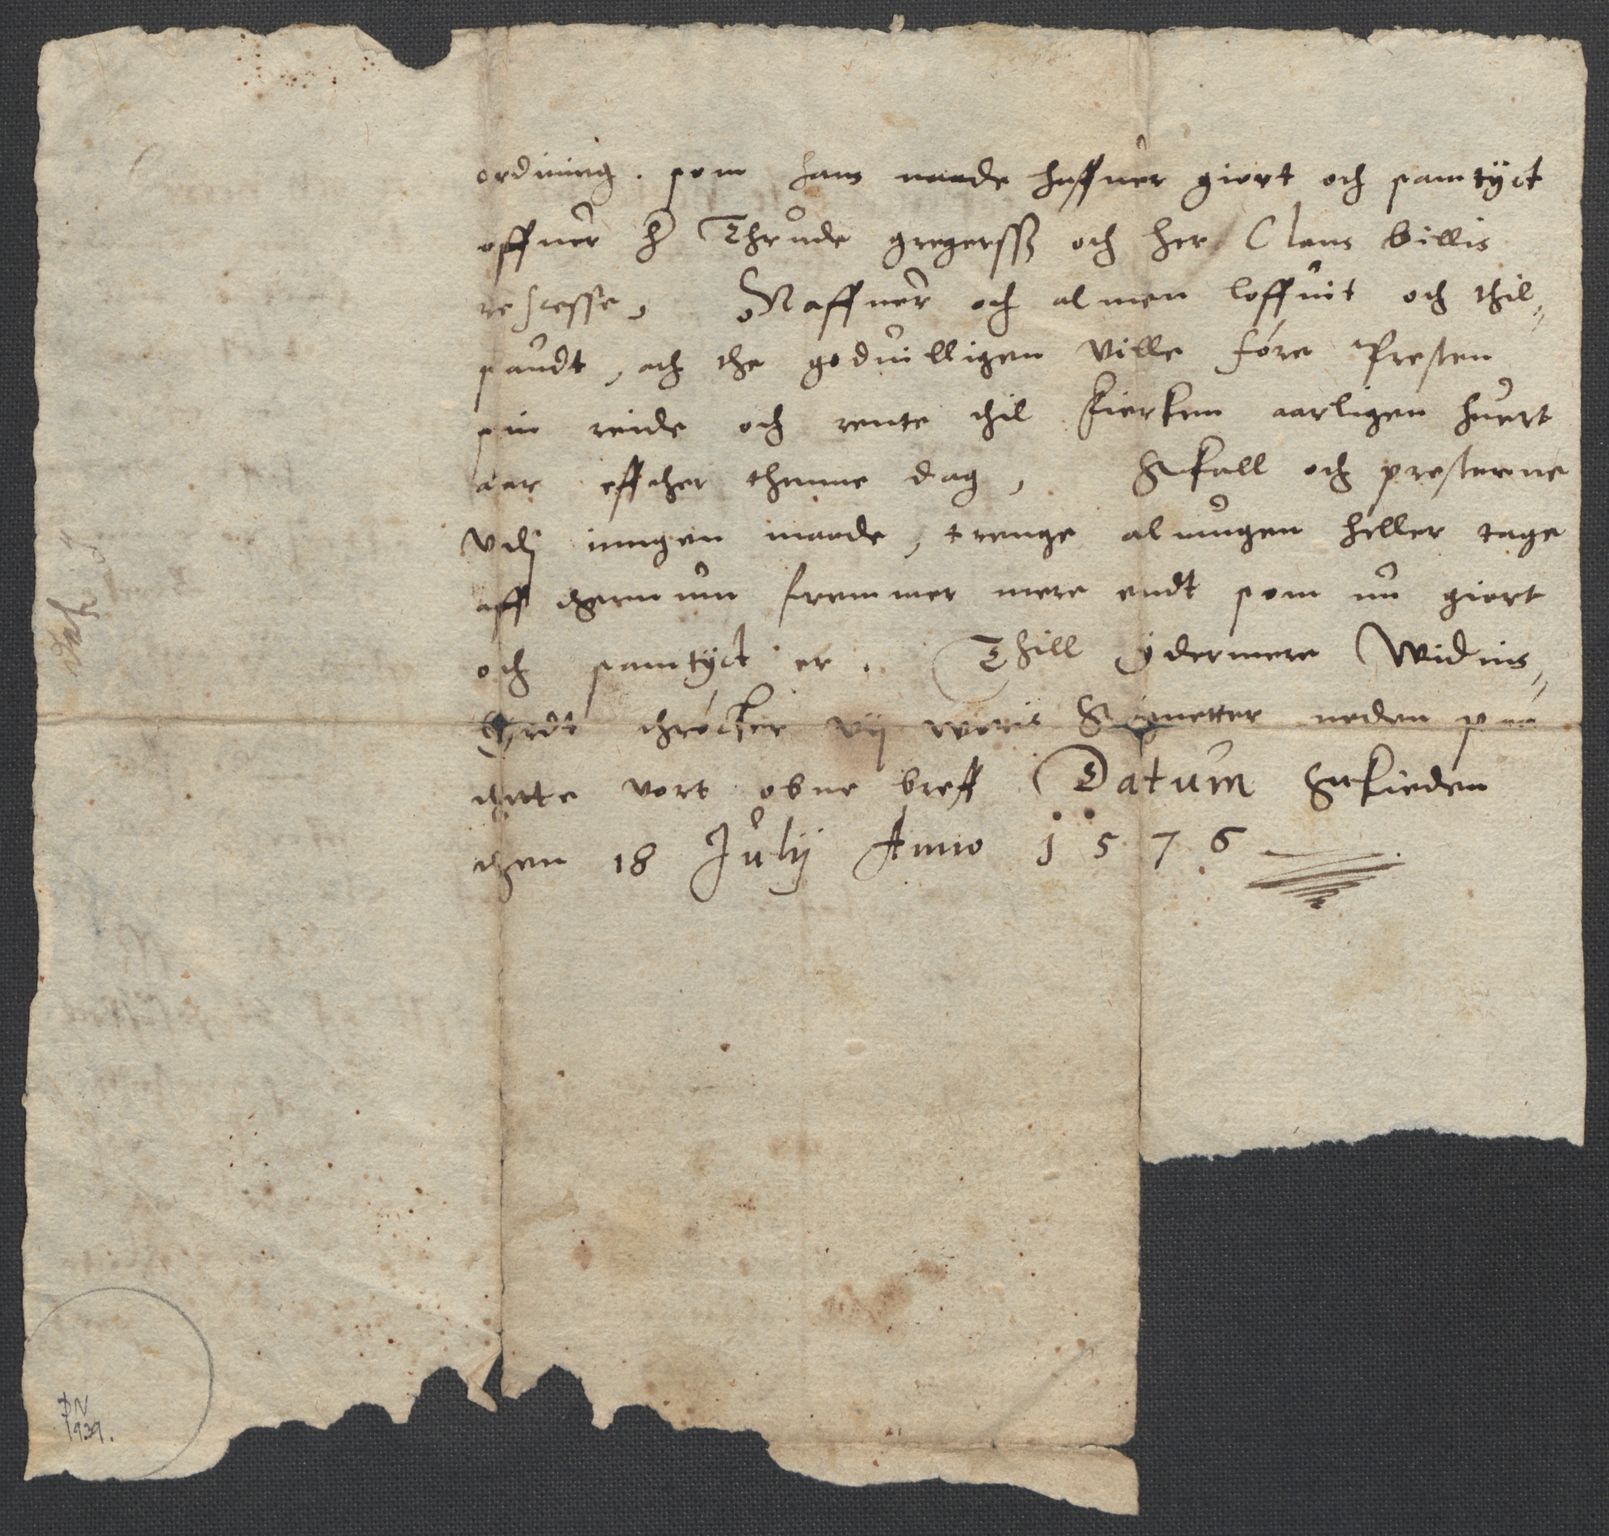 ordning . som hans naade haffuer giort och samtyct
offuer h Thrude gregerssß och her Claus billis
rescesse, Naffuer och almen loffuit och thil„
saudt, ath the goduilligen Ville føre Presten
sin reide och rente thil kierken aarligen huert
aar effther thenne dag, Skall och presterne
Vdj inngen maade, trenge almugen heller tage
aff thennum fremmer mere endt som nu giort
och samtyct er . Thill ÿdermere Widnis„
byrdt thrøcker vij woris Signetter neden paa
thette vort obne breff Datum Skieden
then 18 Julij Anno 1576
DN
1939.